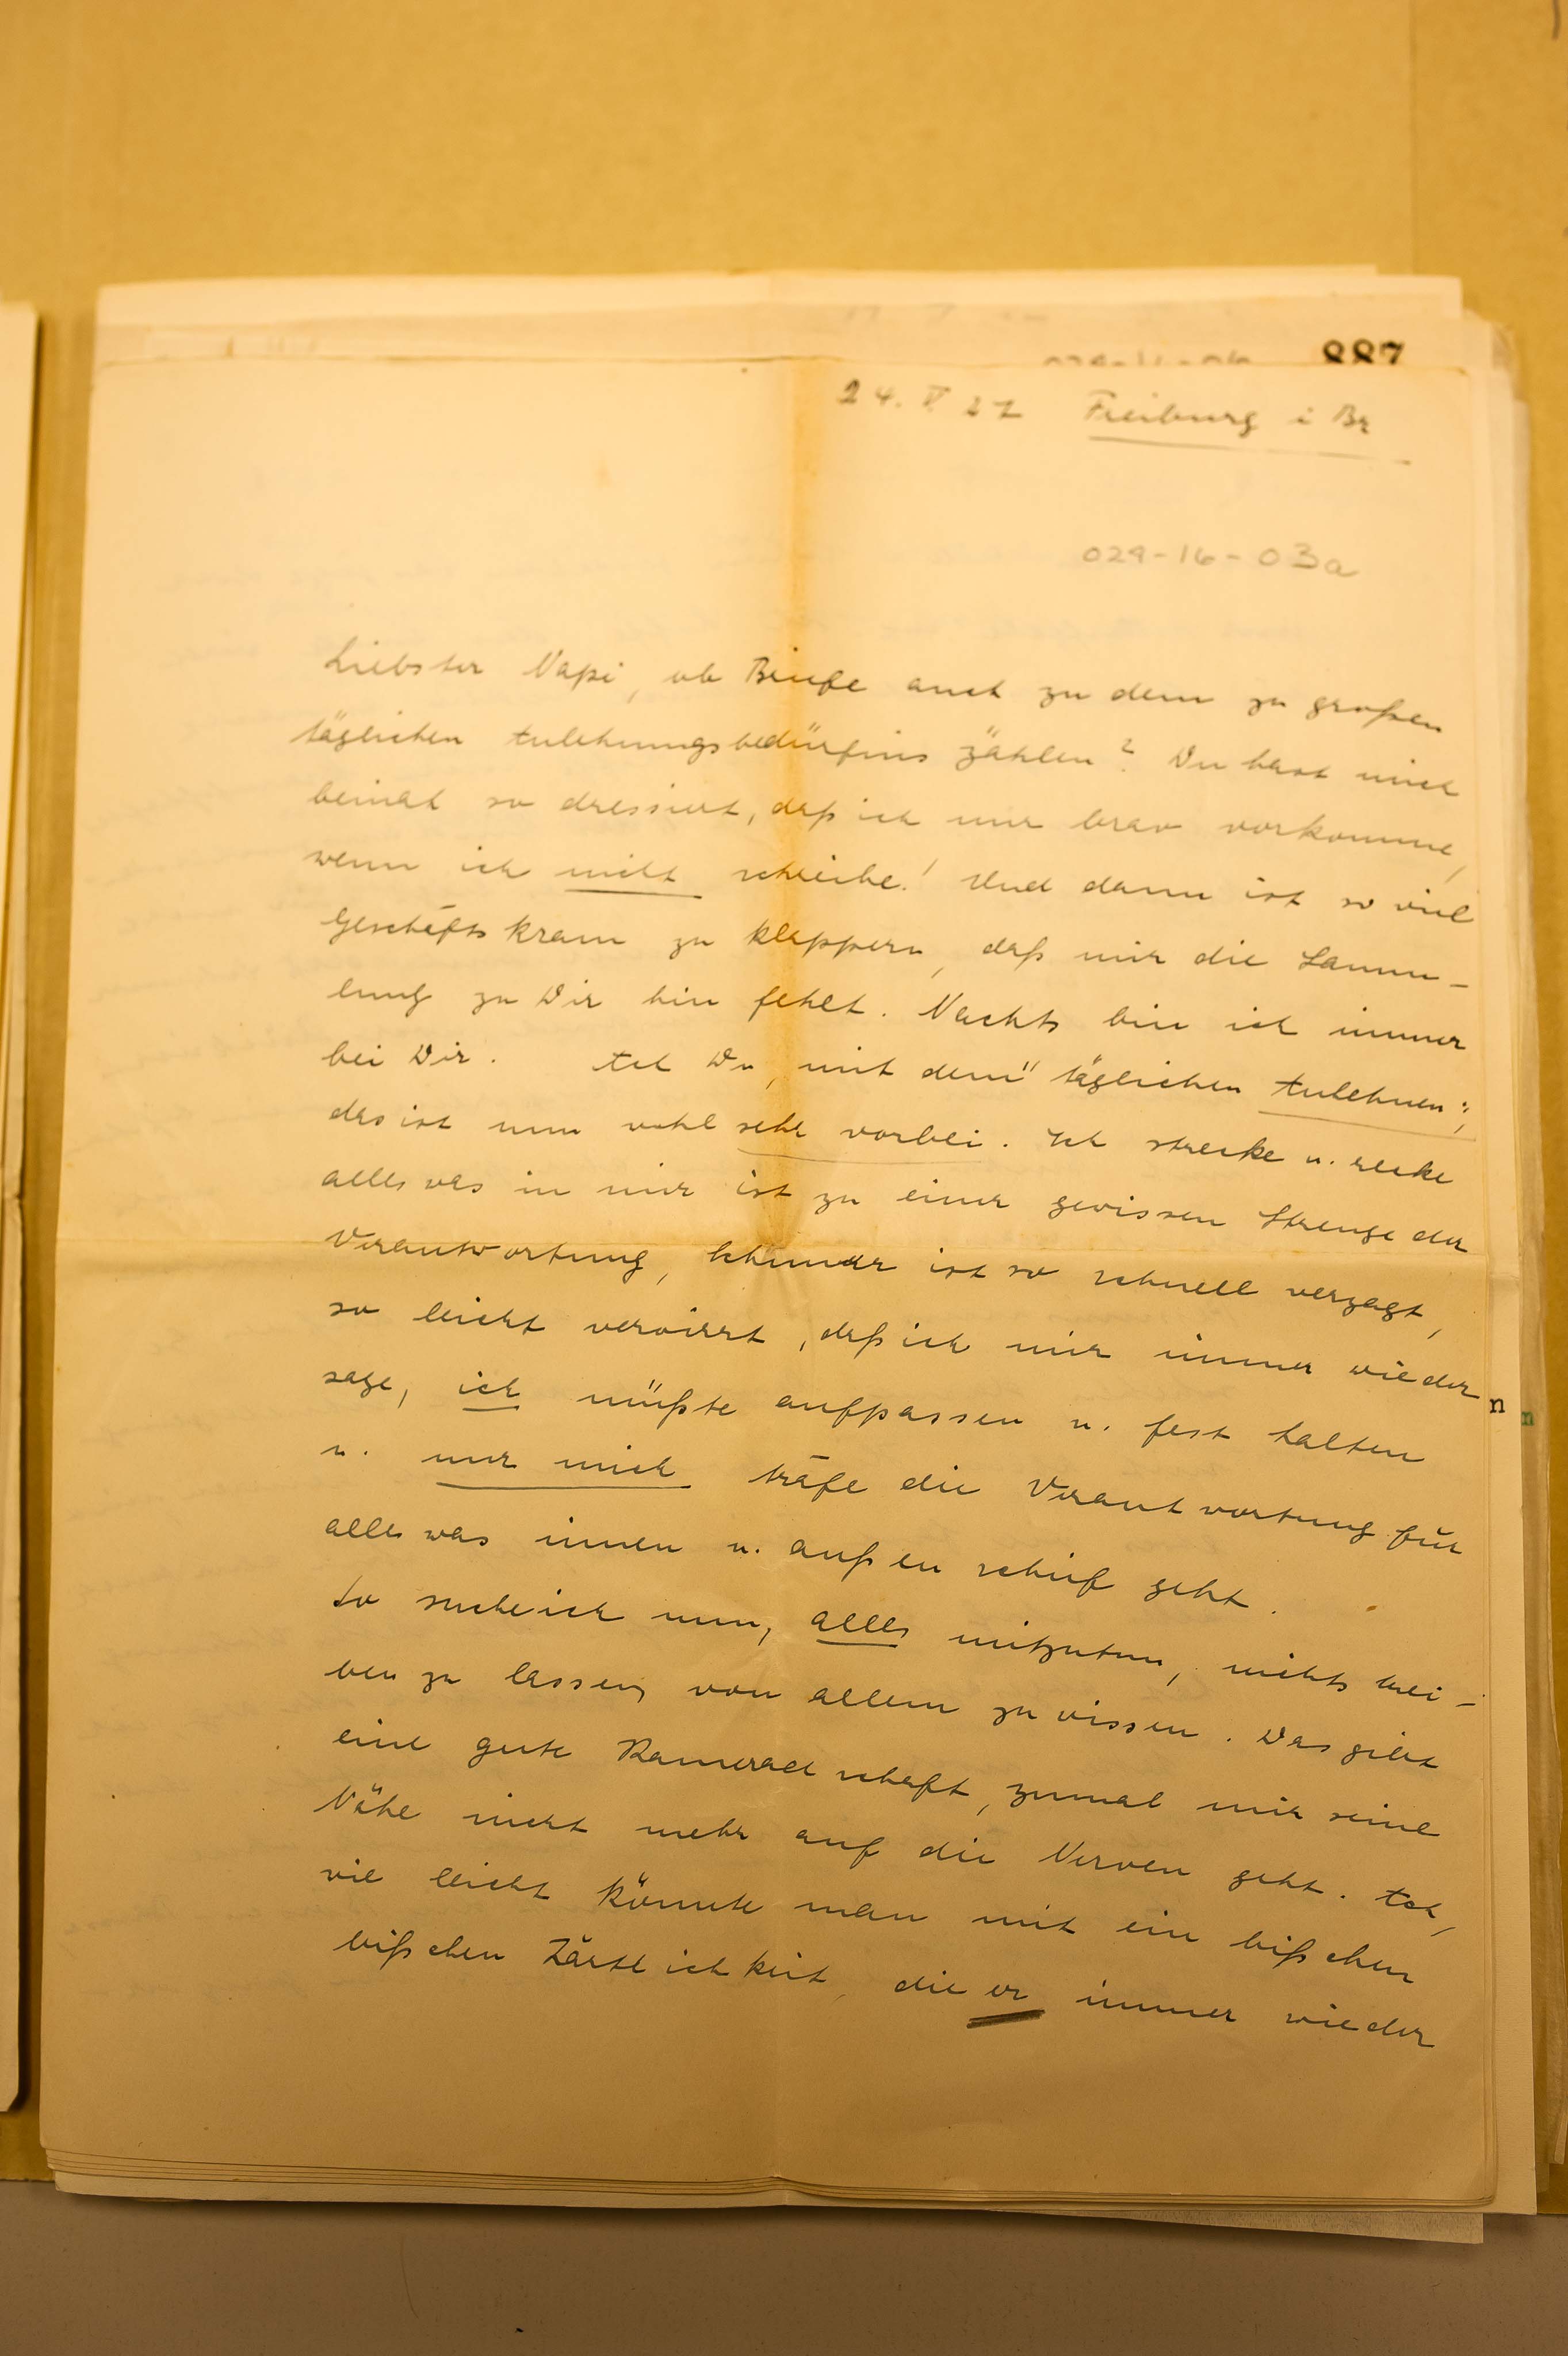 887
24. V 27 Freiburg i Br
029-16-03a
Liebster Napi, ob Briefe auch zu dem zu großen
täglichen Anlehnungsbedürfnis zählen? Du hast mich
beinah so dressiert, daß ich mir brav vorkomme,
wenn ich nicht schreibe! Und dann ist so viel
Geschäftskram zu klappern, daß mir die Samm-
lung zu Dir hin fehlt. Nachts bin ich immer
bei Dir. Ach Du, mit dem "täglichen Anlehnen",
das ist nun wohl sehr vorbei. Ich strecke u. recke
alles was in mir ist zu einer gewissen Strenge der
Verantwortung, ist so schnell verzagt,
so leicht verwirrt, daß ich mir immer wieder
sage, ich müßte aufpassen u. fest halten
u. nur mich träfe die Verantwortung für
alles was innen u. außen schief geht.
So suche ich nun, alles mitzutun, nichts trei-
ben zu lassen, von allem zu wissen. Das gibt
eine gute Kameradschaft, zumal mir seine
Nähe nicht mehr auf die Nerven geht. Ach,
wie leicht könnte man mit ein bißchen
bißchen Zärtlichkeit, die er immer wieder